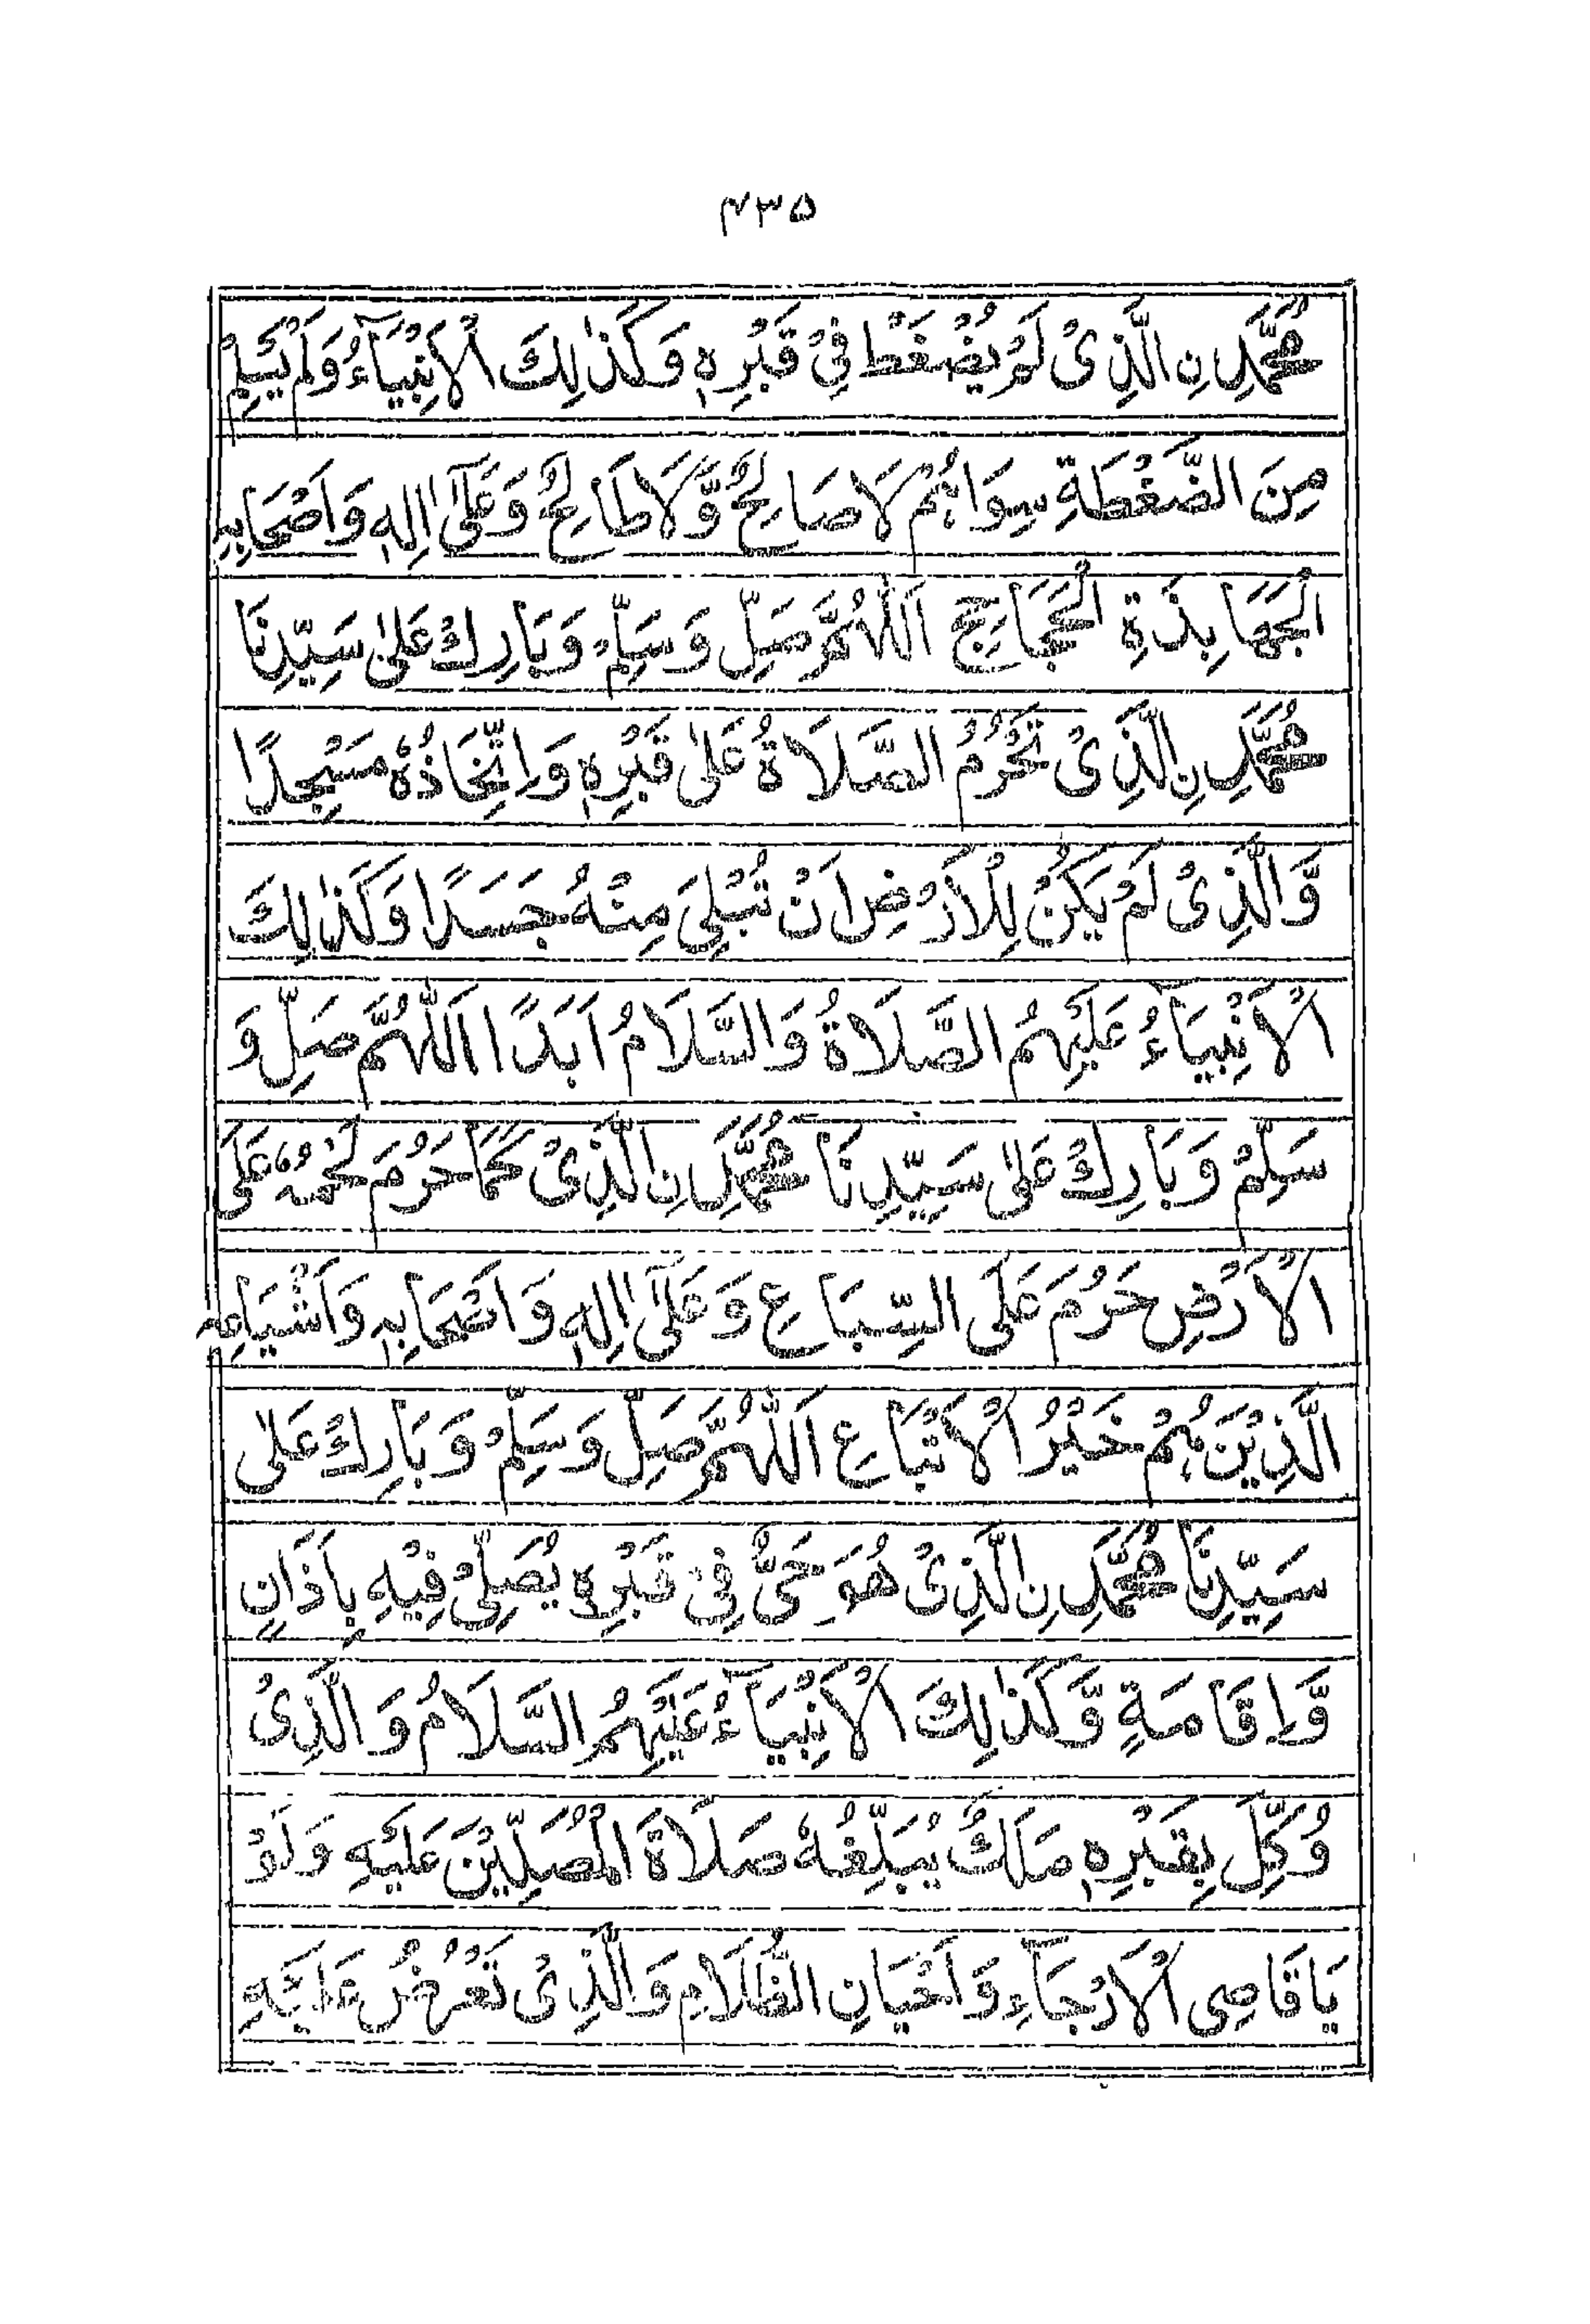 ۴۳۵
مُحَمَّدِ نِ الَّذِیْ لَمْ یُضْغَطْ فِیْ قَبْرِهٖ وَكَذٰلِكَ الْاَنْۢبِیَآءُ وَلَمْ یَسْلِمْ
مِنَ الضَّغْطَةِ سِوَاہُمْ لَا صَالِحٌ وَّلَا طَالِحٌ وَعَلٰٓی اٰلِهٖ وَاَصْحَابِهٖ
الْجَهَابِذَةِ الْحَجَاجِحِ اَللّٰهُمَّ صَلِّ وَسَلِّمْ وَبَارِكْ عَلٰی سَیِّدِنَا
مُحَمَّدِ نِ الَّذِیْ تَحْرُمُ الصَّلَاةُ عَلٰی قَبْرِهٖ وَاِتِّخَاذُهٗ مَسْجِدًا
وَّالَّذِیْ لَمْ یَكُنْ لِلْاَرْضِ اَنْ تُبْلِیَ مِنْهُ جَسَدًا وَكَذٰلِكَ
الْاَنْۢبِیَآءُ عَلَیْهِمُ الصَّلَاةُ وَالسَّلَامُ اَبَدًا اَللّٰهُمَّ صَلِّ وَ
سَلِّمْ وَبَارِكْ عَلٰی سَیِّدِنَا مُحَمَّدِ نِ الَّذِیْ كَمَا حَرُمَ لَحْمُهٗ عَلَی
الْاَرْضِ حَرُمَ عَلَی السِّبَاعِ وَعَلٰٓی اٰلِهٖ وَاَصْحَابِهٖ وَاَشْیَاعِهِ
الَّذِیْنَ ہُمْ خَیْرُ الْاَتْبَاعِ اَللّٰهُمَّ صَلِّ وَسَلِّمْ وَبَارِكْ عَلٰی
سَیِّدِنَا مُحَمَّدِ نِ الَّذِیْ هُوَ حَیٌّ فِیْ قَبْرِهٖ یُصَلِّیْ فِیْهِ بِاَذَانٍ
وَّاِقَامَةٍ وَّكَذٰلِكَ الْاَنْۢبِیَآءُ عَلَیْهِمُ السَّلَامُ وَالَّذِیْ
وُكِّلَ بِقَبْرِهٖ مَلَكٌ یُبَلِّغُهٗ صَلَاةَ الْمُصَلِّیْنَ عَلَیْهِ وَلَوْ
بِاَقَاصِی الْاَرْجَآءِ وَاَحْیَانِ الظَّلَامِ وَالَّذِیْ تُعْرَضُ عَلَیْهِ